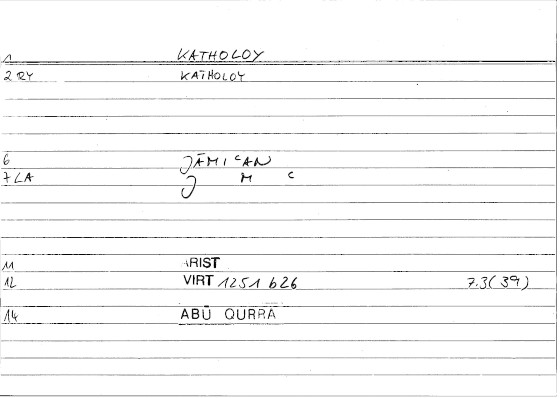 1 KATHOLOY
2 RY KATHOLOY
6 JĀMIʿAN
7 LA J M ʿ
11 ARIST
12 VIRT 1251 b26 7.3(39)
14 ABŪ QURRA